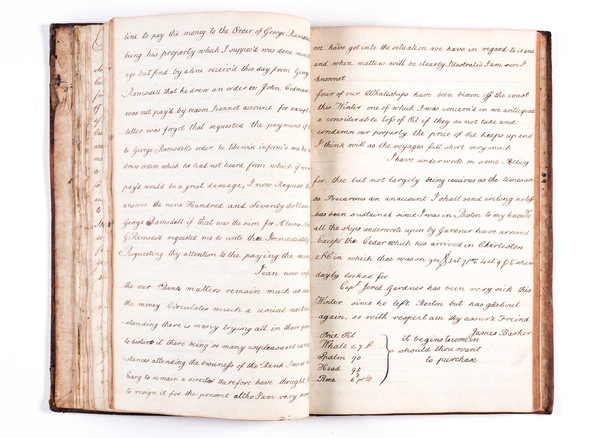 line to pay this money to the Order of George Ramsdell
being his property which I suppos'd was done
ago but find by a line receiv'd this day from George
Ramsdell that he drew an order on John Codman
was not pay'd by reason I cannot account for except
letter was forgot that requested the payment of
to George Ramsdells order he likewise inform's me he
drew orders which he had not heard from which if
pay'd would be a great damage, I now Request
answer the nine Hundred and Seventy dollars
George Ramsdell if that was the sum for
G Ramsdell requested me to write thee Immediately
Requesting thy attention to the paying the
I can now
the our Bank matters remain much as
the money Circulates much as usual notwith
standing there is many trying all in their power
to it there being so many unpleasant
stances attending the business of the Bank, I
to remain a director therefore have thought
to resign it for the present altho I am very
we have got into the situation we have in regard to it and
and when matters will be clearly Illustrated I am sure I
know not
four of our Whaleships have been blown off the coast
this Winter one of which I was concern'd in we anticipate
a considerable loss of Oil if they do not take and
condemn our property the price of Oil keeps up and
I think will as the voyages fall short very much
I have underwrote on some
for thee but not largely being cautious as the times are
so Precarious an account I shall send no loss
has been sustained since I was in Boston to my knowledge
all the ships underwrote upon by Gardner have arrived
Except the Cedar which has arrived in Charleston
SC in which thee was on at at she is
dayly looked for
Capt Jared Gardner has been very sick this
Winter since he left Boston but has got about
again, so with respect am thy assur'd Freind
James Barker
Price Oil
Whale
Spalm 70
Head 90
Bone
it begins to come in
should thou want
to purchase